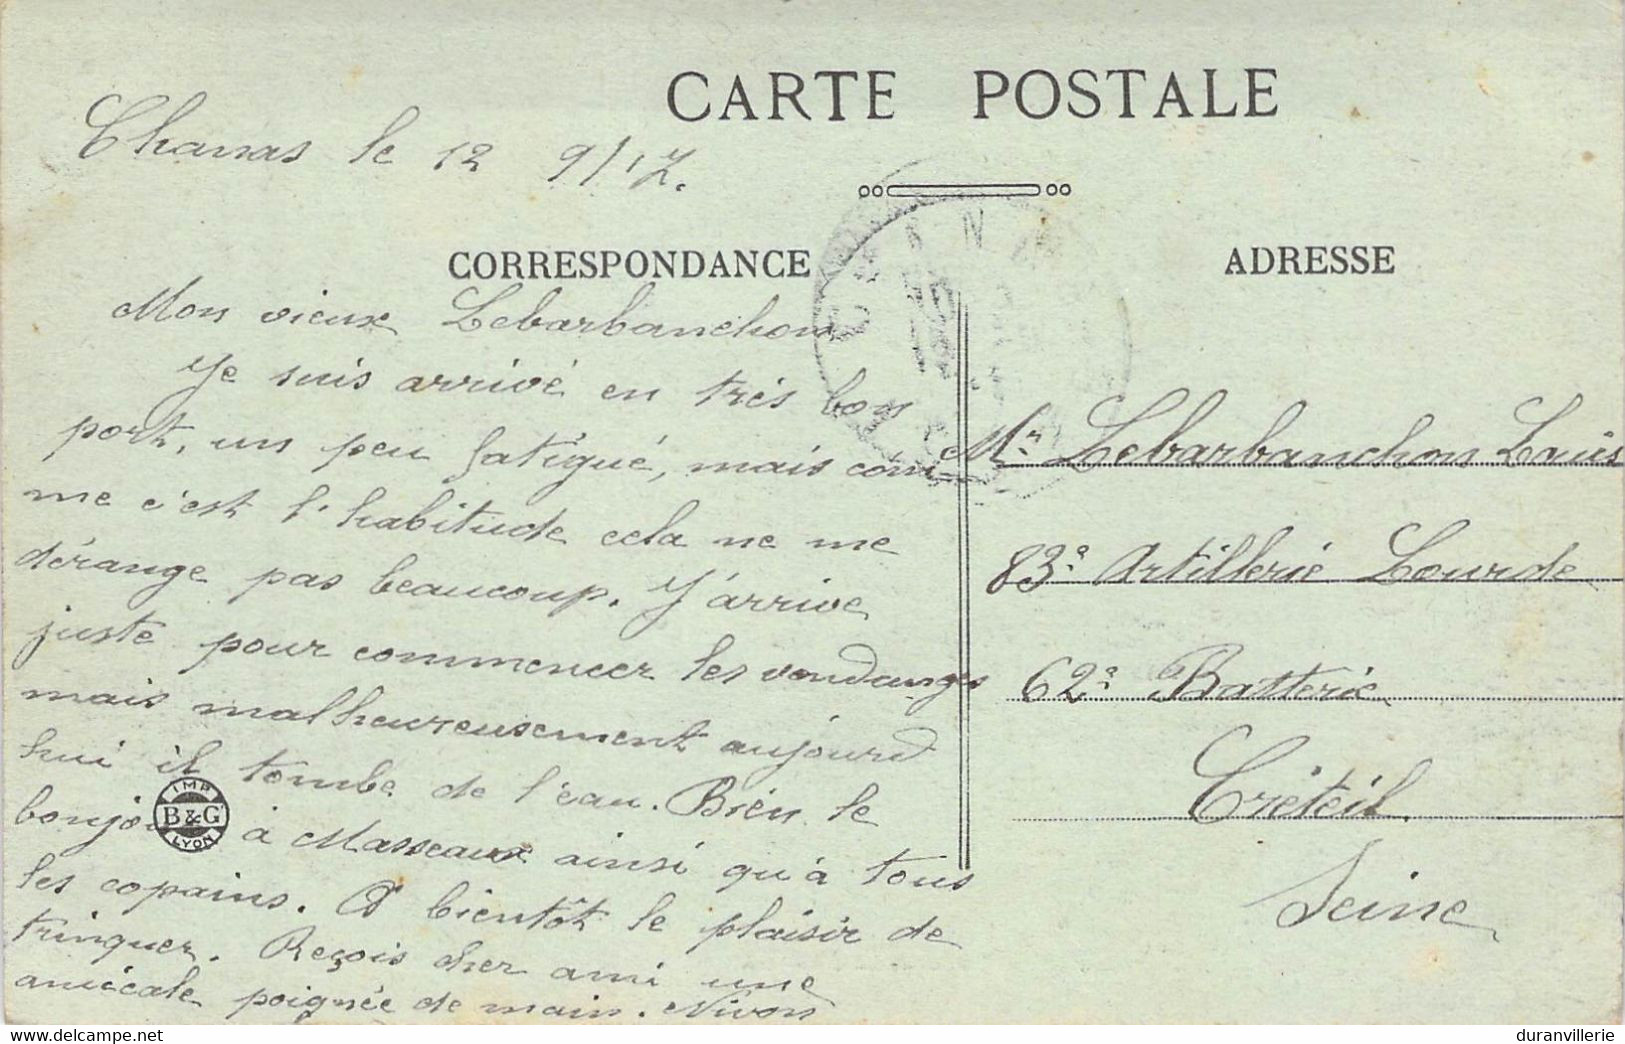 CARTE POSTALE
Chanas le 12 9/17.
CORRESPONDANCE
Mon vieux Lebarbanchon
Je suis arrivé en très bon
port, un peu fatigué, mais com-
me c'est l'habitude cela ne me
dérange pas beaucoup. J'arrive
juste pour commencer les vendanges
mais malheureusement aujourd
hui il tombe de l'eau. Bien le
bonjour à Masseaux ainsi qu'à tous
les copains. A bientôt le plaisir de
trinquer. Reçois cher ami une
amicale poignée de main. Nivon
IMP
B&G
LYON
ADRESSE
Mr. Lebarbanchon Louis
83e Artillerie Lourde
62e Batterie
Créteil.
Seine
duranvillerie